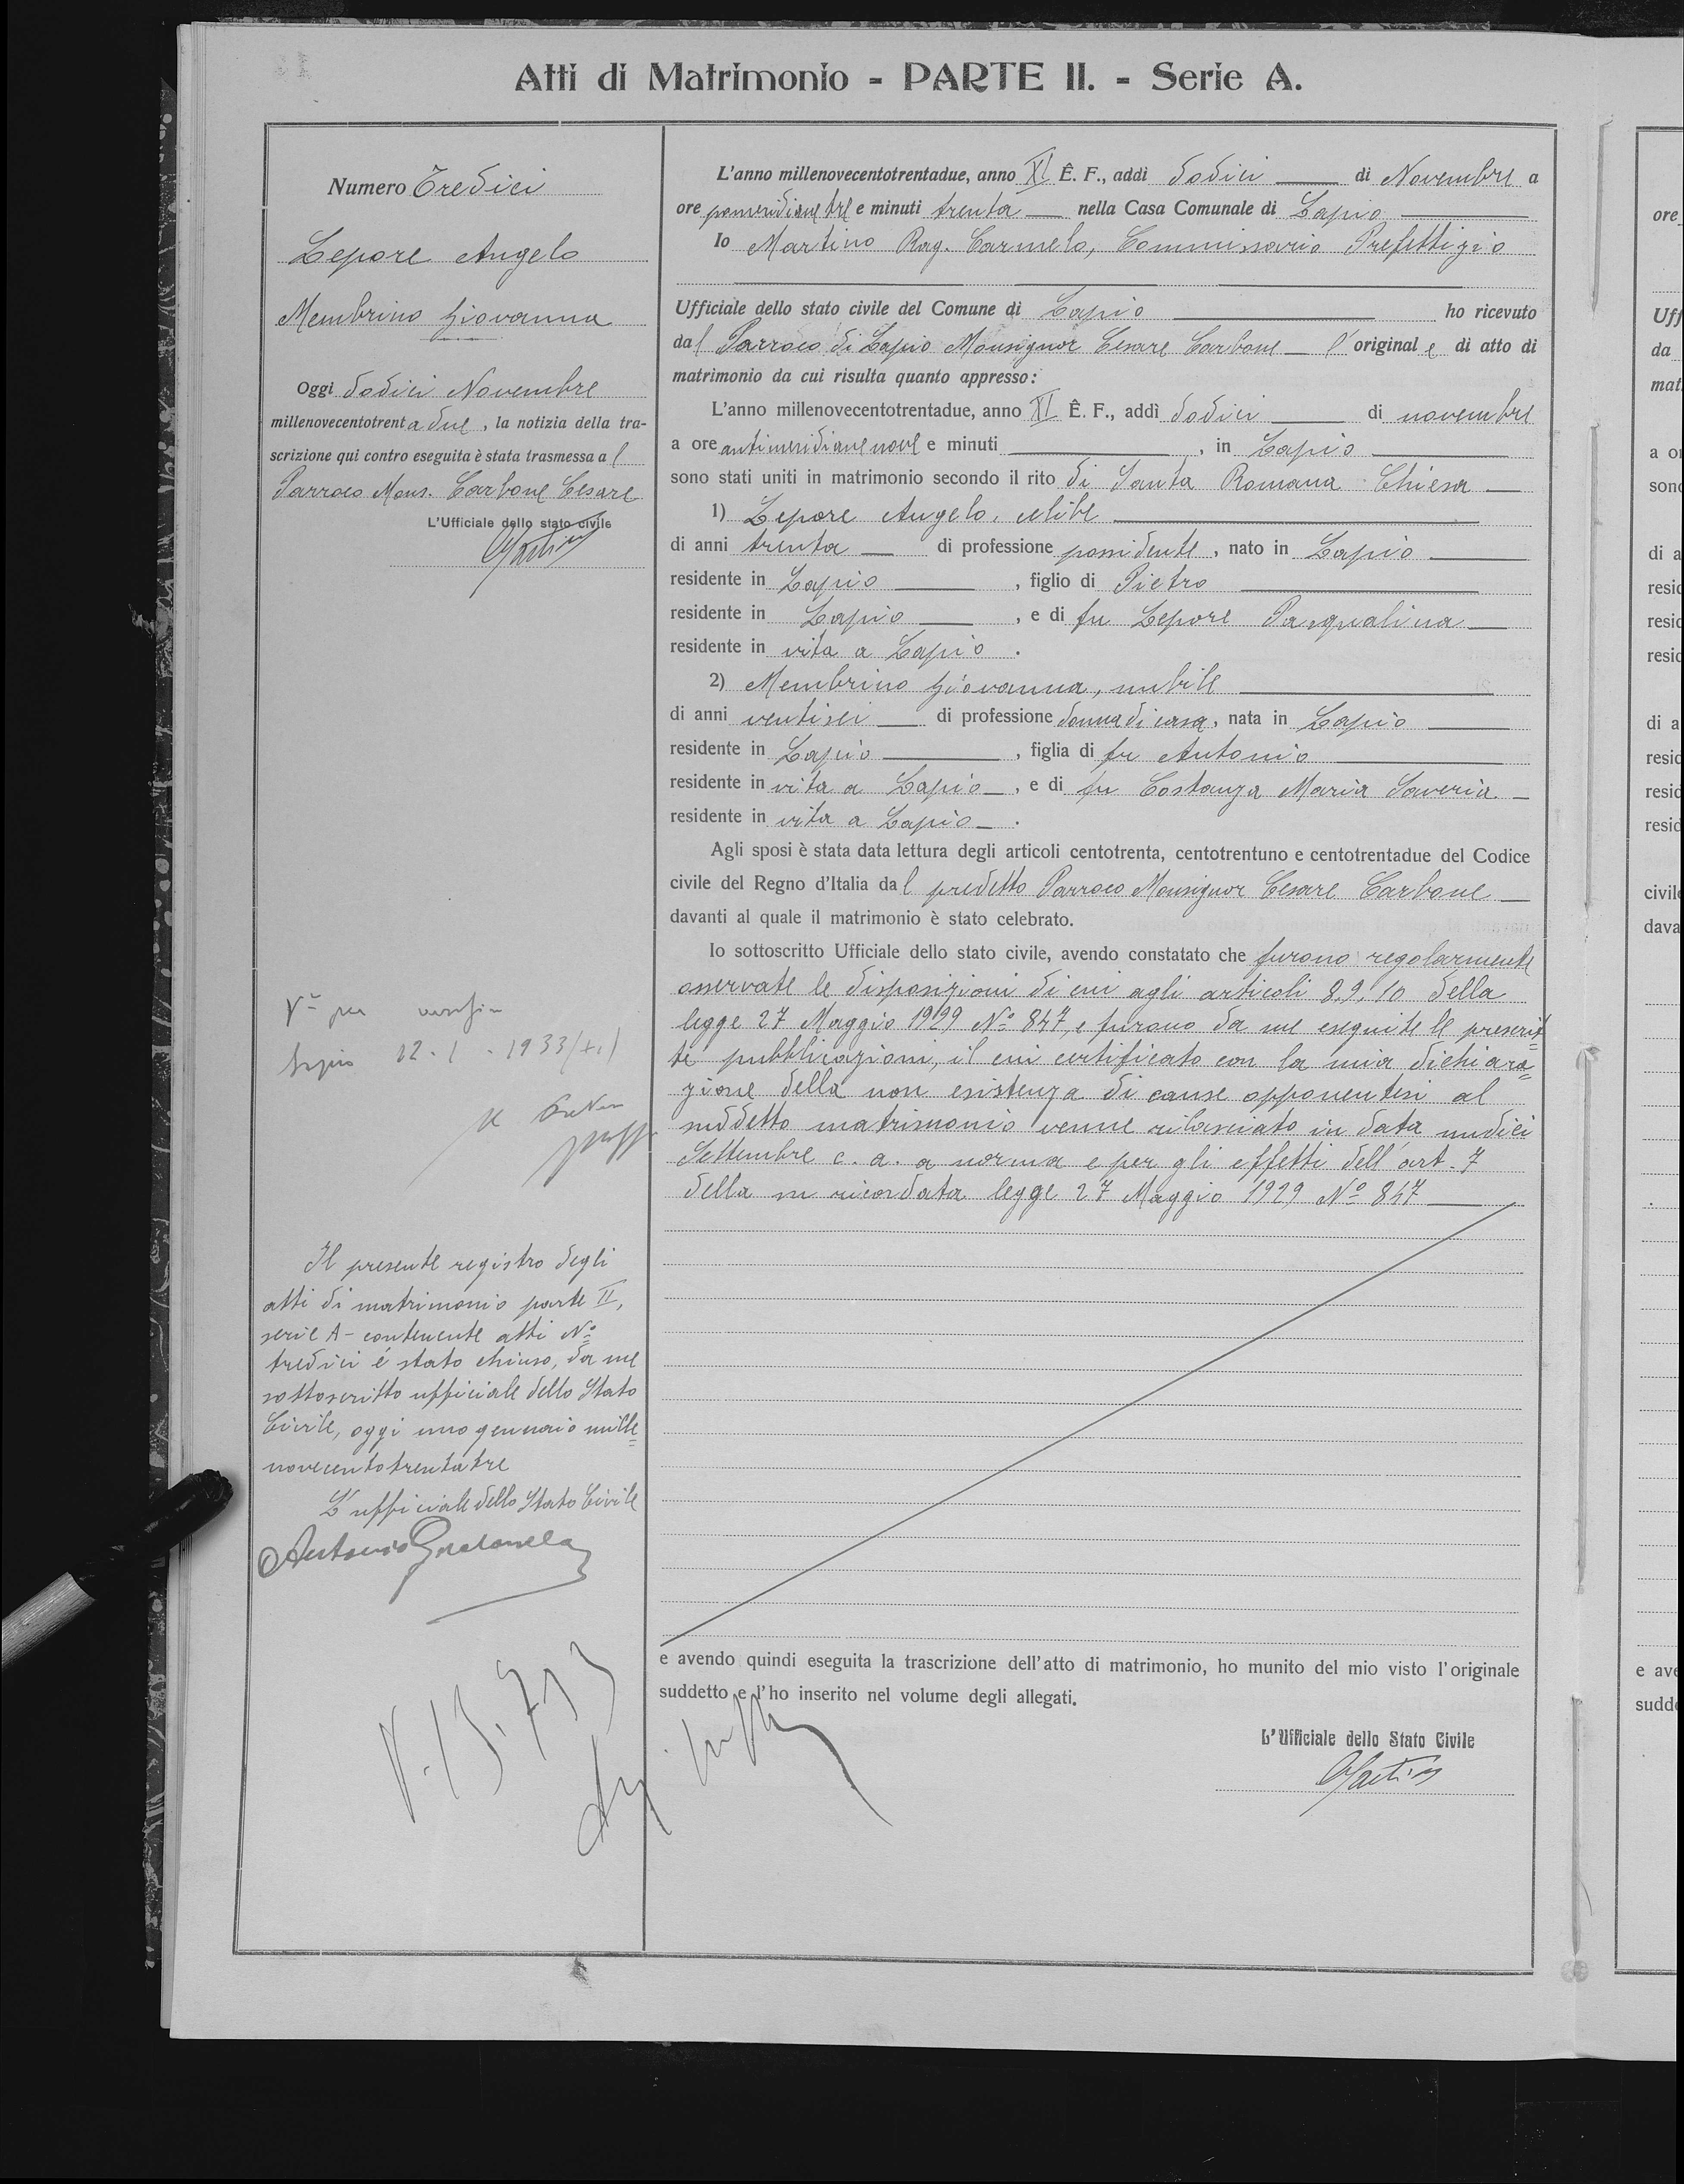 Atti di Matrimonio - PARTE II. - Serie A.
Numero Tredici
Lepore Angelo
Membrino Giovanna
Oggi dodici Novembre
millenovecentotrenta due, la notizia della tra-
scrizione qui contro eseguita è stata trasmessa al
Parroco Mons. Carbone Cesare
L'Ufficiale dello stato civile
CMartino
L'anno millenovecentotrentadue, anno XI E. F., addì dodici di Novembre a
ore pomeridiane tre e minuti trenta nella Casa Comunale di Lapio
Io Martino Rag. Carmelo, Commissario Prefettizio
Ufficiale dello stato civile del Comune di Lapio ho ricevuto
dal Parroco di Lapio Monsignor Cesare Carbone l'originale di atto di
matrimonio da cui risulta quanto appresso:
L'anno millenovecentotrentadue, anno XI E. F., addì dodici di novembre
a ore antimeridiane nove e minuti , in Lapio
sono stati uniti in matrimonio secondo il rito di Santa Romana Chiesa
1) Lepore Angelo, celibe
di anni trenta di professione possidente, nato in Lapio
residente in Lapio , figlio di Pietro
residente in Lapio , e di fu Lepore Pasqualina
residente in vita a Lapio .
2) Membrino Giovanna, nubile
di anni ventisei di professione donna di casa, nata in Lapio
residente in Lapio , figlia di fu Antonio
residente in vita a Lapio , e di fu Costanza Maria Saveria
residente in vita a Lapio .
Agli sposi è stata data lettura degli articoli centotrenta, centotrentuno e centotrentadue del Codice
civile del Regno d'Italia dal predetto Parroco Monsignor Cesare Carbone
davanti al quale il matrimonio è stato celebrato.
Io sottoscritto Ufficiale dello stato civile, avendo constatato che furono regolarmente
osservate le disposizioni di cui agli articoli 8, 9, 10 della
legge 27 Maggio 1929 Nº 847, e furono da me eseguite le prescrit=
te pubblicazioni, il cui certificato con la mia dichiara=
zione della non esistenza di cause opponentesi al
suddetto matrimonio venne rilasciato in data undici
Settembre c. a. a norma e per gli effetti dell'art. 7
della su ricordata legge 27 Maggio 1929 Nº 847
e avendo quindi eseguita la trascrizione dell'atto di matrimonio, ho munito del mio visto l'originale
suddetto e l'ho inserito nel volume degli allegati.
L'Ufficiale dello Stato Civile
CMartino
Vº per verifica
Lapio 12-1-1933 (XI)
Il presente registro degli
atti di matrimonio parte II,
serie A - contenente atti Nº
tredici è stato chiuso, da me
sottoscritto ufficiale dello Stato
Civile, oggi uno gennaio mille=
novecentotrentatre
L'ufficiale dello Stato Civile
Antonio